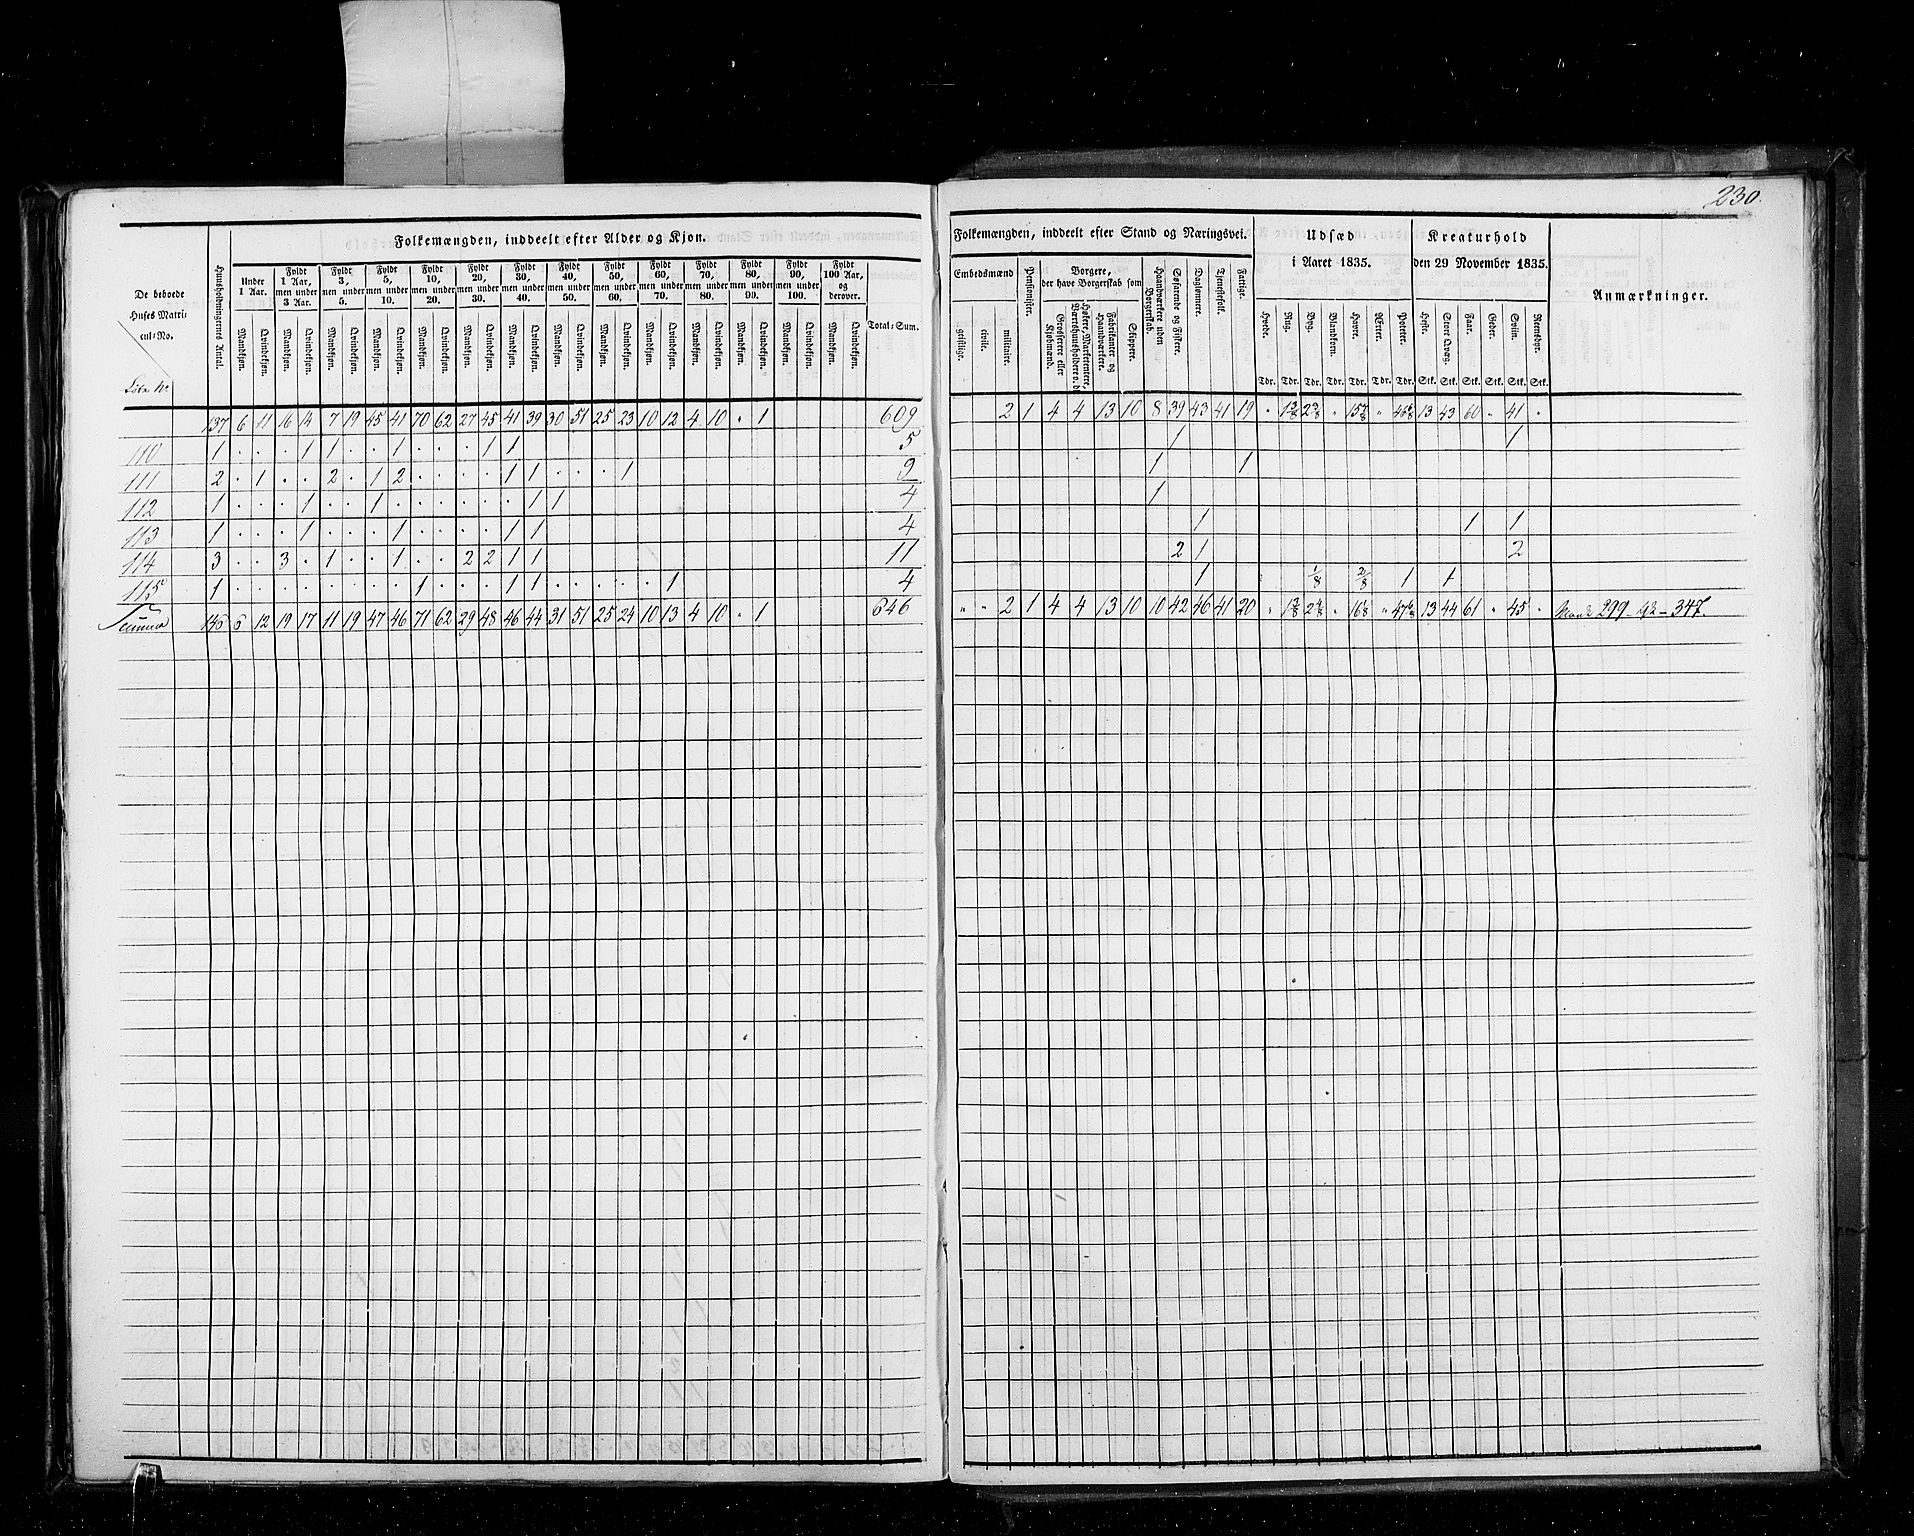 230.
Folkemængden, inddeelt efter Alder og Kjøn.
De beboede Huses Matricul-No.
Løbe No
Huusholdningernes Antal.
Under 1 Aar.
Fyldt 1 Aar, men under 3 Aar.
Fyldt 3, men under 5.
Fyldt 5, men under 10.
Fyldt 10, men under 20.
Fyldt 20, men under 30.
Fyldt 30, men under 40.
Fyldt 40, men under 50.
Fyldt 50, men under 60.
Fyldt 60, men under 70.
Fyldt 70, men under 80.
Fyldt 80, men under 90.
Fyldt 90, men under 100.
Fyldt 100 Aar, og derover.
Mandkjøn. Qvindekjøn. Mandkjøn. Qvindekjøn. Mandkjøn. Qvindekjøn. Mandkjøn. Qvindekjøn. Mandkjøn. Qvindekjøn. Mandkjøn. Qvindekjøn. Mandkjøn. Qvindekjøn. Mandkjøn. Qvindekjøn. Mandkjøn. Qvindekjøn. Mandkjøn. Qvindekjøn. Mandkjøn. Qvindekjøn. Mandkjøn. Qvindekjøn. Mandkjøn. Qvindekjøn. Mandkjøn. Qvindekjøn.
Total-Sum.
137 6 11 16 14 7 19 45 41 70 62 27 45 41 39 30 51 25 23 10 12 4 10 . 1 609
110 1 . . . 1 1 . . 1 . . . 1 1 5
111 2 . 1 . . 2 . 1 2 . . . . 1 1 . . . 1 9
112 1 . . . 1 . . 1 . . . . . . 1 1 4
113 1 . . . 1 . . . 1 . . . . 1 1 4
114 3 . . 3 . 1 . . 1 . . 2 2 1 1 11
115 1 . . . . . . . . 1 . . . 1 1 . . . . . 1 4
Summa 146 6 12 19 17 11 19 47 46 71 62 29 48 46 44 31 51 25 24 10 13 4 10 . 1 646
Folkemængden, inddeelt efter Stand og Næringsvei.
Embedsmænd
geistlige. civile. militaire.
Pensionister.
Borgere, der have Borgerskab som
Grosserere eller Kjøbmænd.
Høkere, Marketentere, Værtshuusholdere o. d.
Fabrikanter og Haandværkere.
Skippere.
Haandværkere uden Borgerskab.
Søfarende og Fiskere.
Daglønnere.
Tjenestefolk.
Fattige.
Udsæd i Aaret 1835.
Hvede. Rug. Byg. Blandkorn. Havre. Ærter. Poteter.
Tdr. Tdr. Tdr. Tdr. Tdr. Tdr. Tdr.
Kreaturhold den 29 November 1835.
Heste. Stort Qvæg. Faar. Geder. Sviin. Reensdyr.
Stk. Stk. Stk. Stk. Stk. Stk.
Anmærkninger.
2 1 4 4 13 10 8 39 43 41 19 13 43 60 41
1 1
1 1
1
1 1 1
2 1 2
1 1/8 2/8 1 1
2 1 4 4 13 10 10 42 46 41 20 13 44 61 45 299 347.